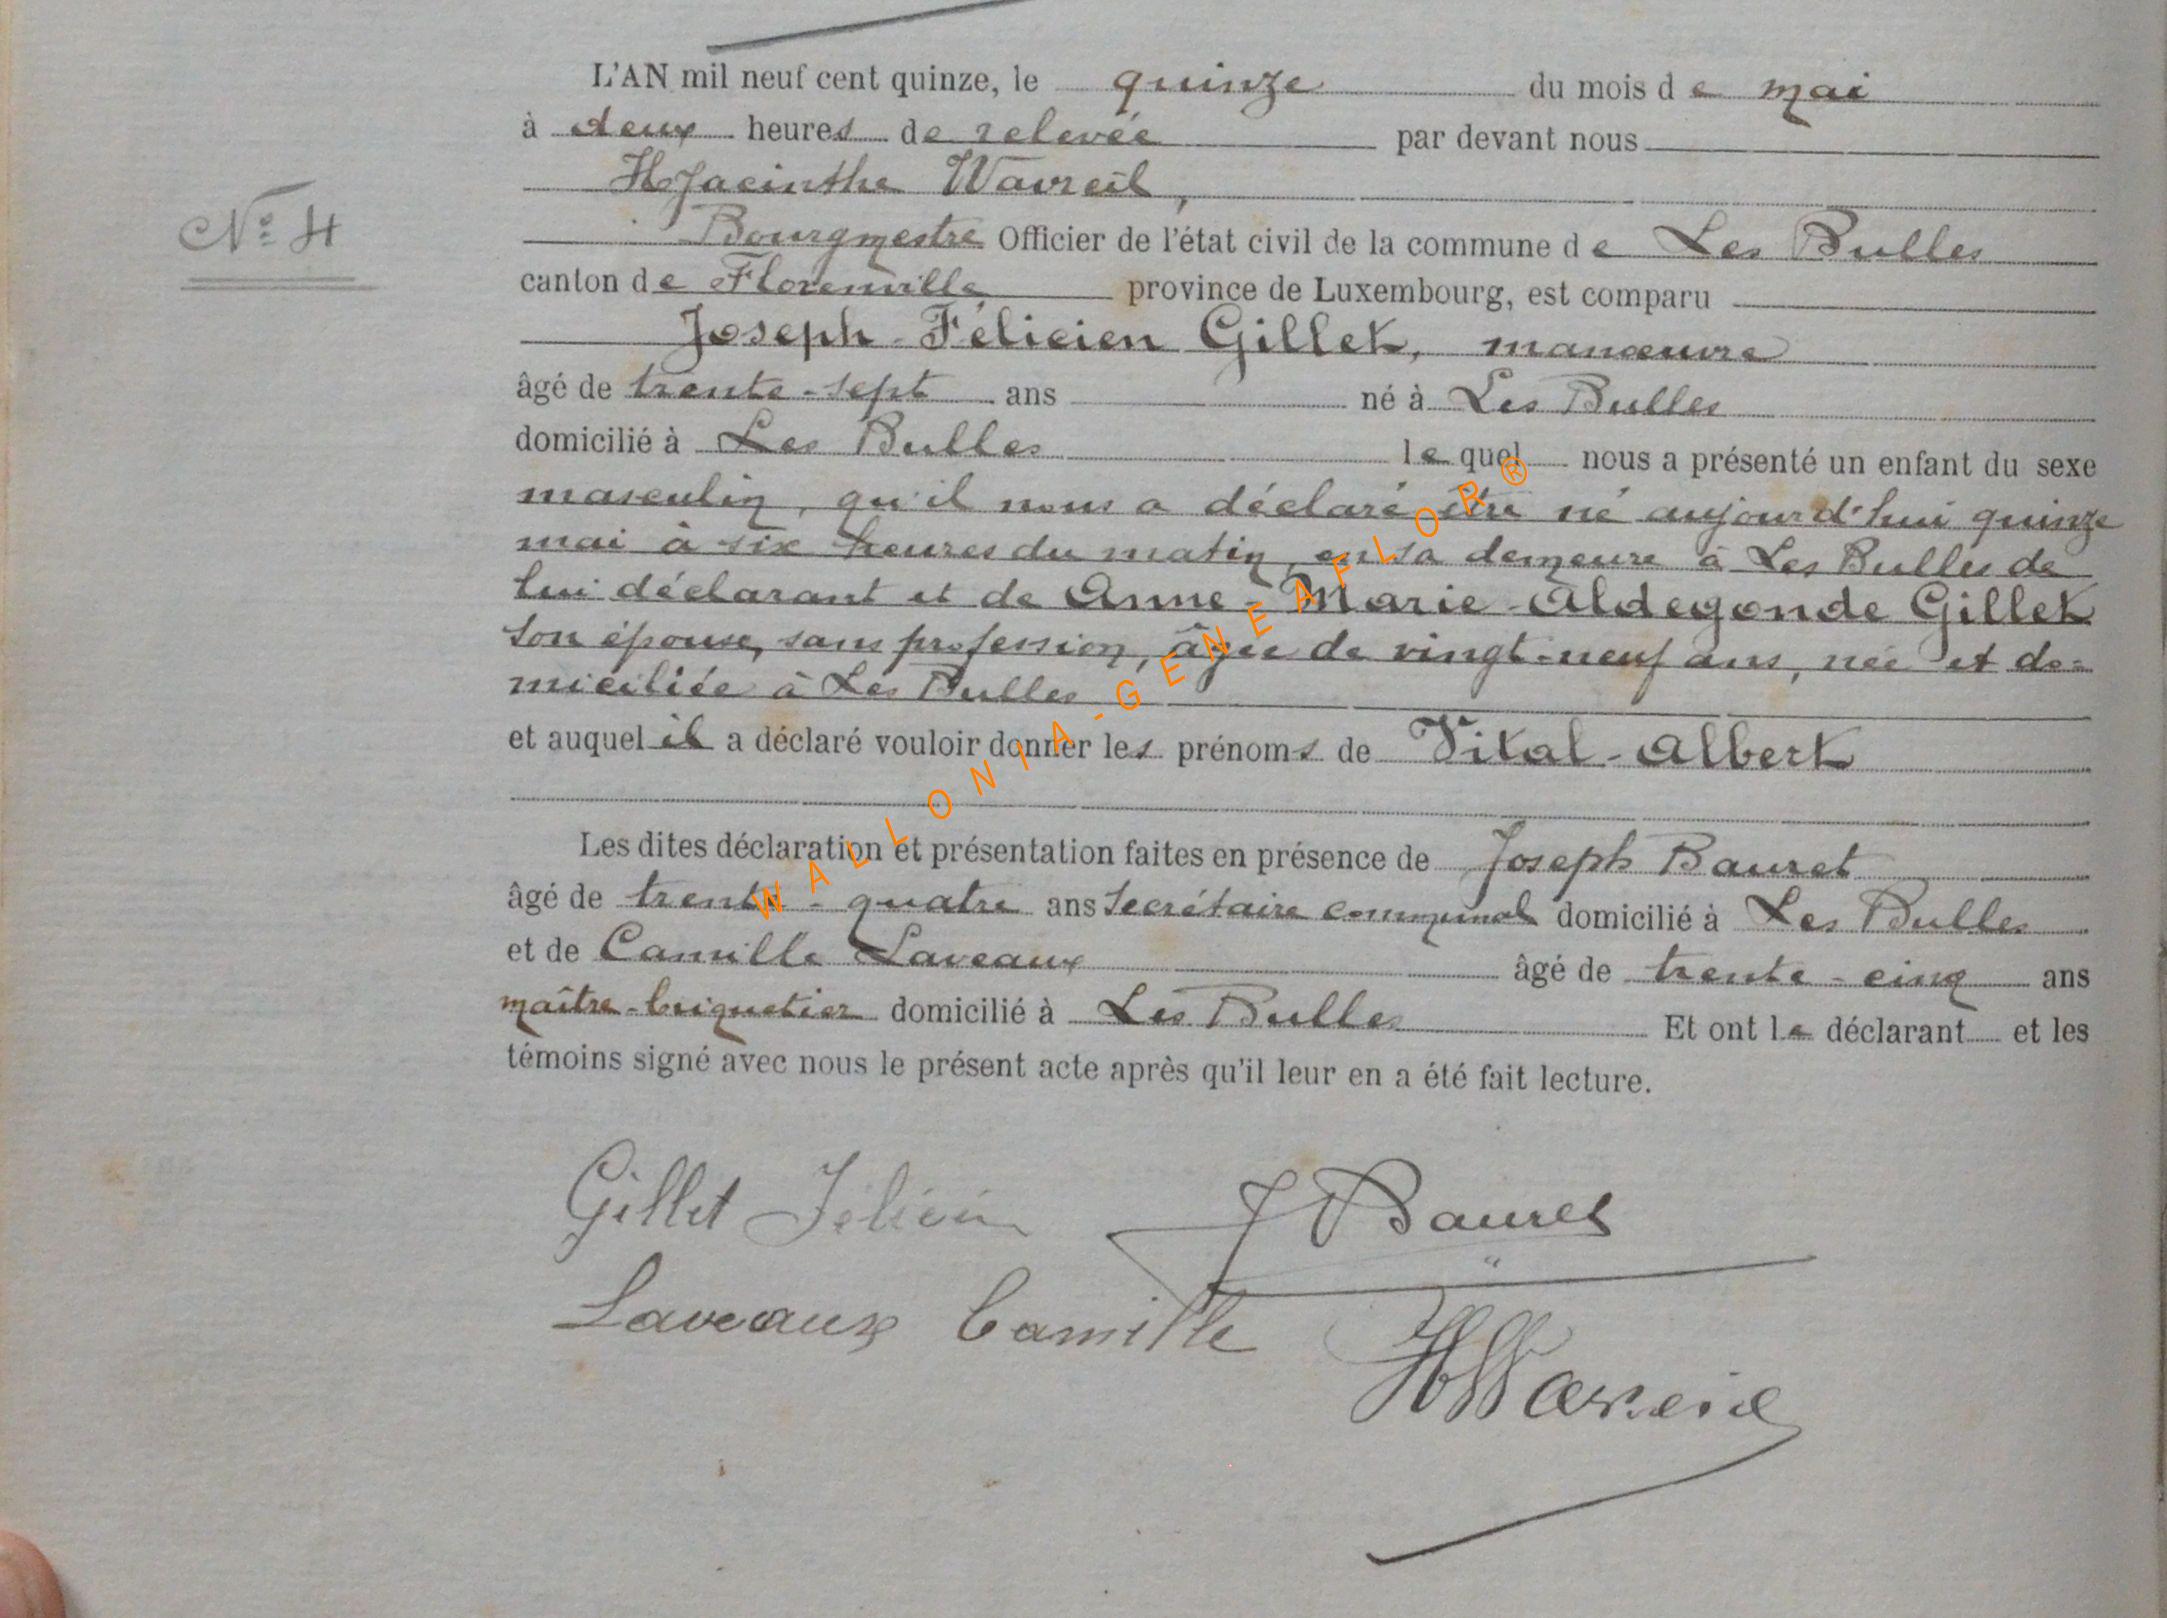 L'AN mil neuf cent quinze, le quinze du mois de mai
à deux heures de relevée par devant nous
Hyacinthe Wavreil,
N° 4
Bourgmestre Officier de l'état civil de la commune de Les Bulles
canton de Florenville province de Luxembourg, est comparu
Joseph-Félicien Gillet, manœuvre
âgé de trente-sept ans né à Les Bulles
domicilié à Les Bulles lequel nous a présenté un enfant du sexe
masculin, qu'il nous a déclaré être né aujourd'hui quinze
mai à six heures du matin, en sa demeure à Les Bulles de
lui déclarant et de Anne-Marie-Aldegonde Gillet
son épouse, sans profession, âgée de vingt-neuf ans, née et do=
miciliée à Les Bulles
et auquel il a déclaré vouloir donner les prénoms de Vital-Albert
Les dites déclaration et présentation faites en présence de Joseph Bauret
âgé de trente-quatre ans secrétaire communal domicilié à Les Bulles
et de Camille Laveaux âgé de trente-cinq ans
maître-briquetier domicilié à Les Bulles Et ont le déclarant et les
témoins signé avec nous le présent acte après qu'il leur en a été fait lecture.
Gillet Félicien J Bauret
Laveaux Camille
HWavreil
WALLONIA-GENEAFLOR®